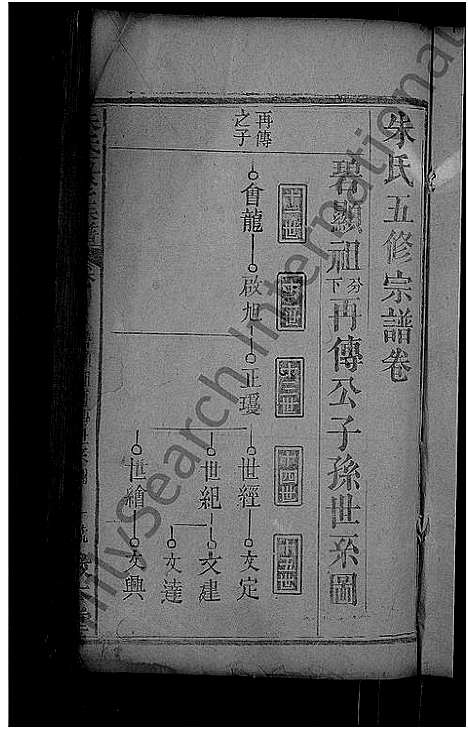 朱氏五修宗譜卷
碧顯祖分下再傳公子孫世系圖
十一世
十二世
十三世
十四世
十五世
再傳之子
會龍
啟旭
正瓊
世經
文定
世紀
文建
文達
世繪
文興
FamilySearch International